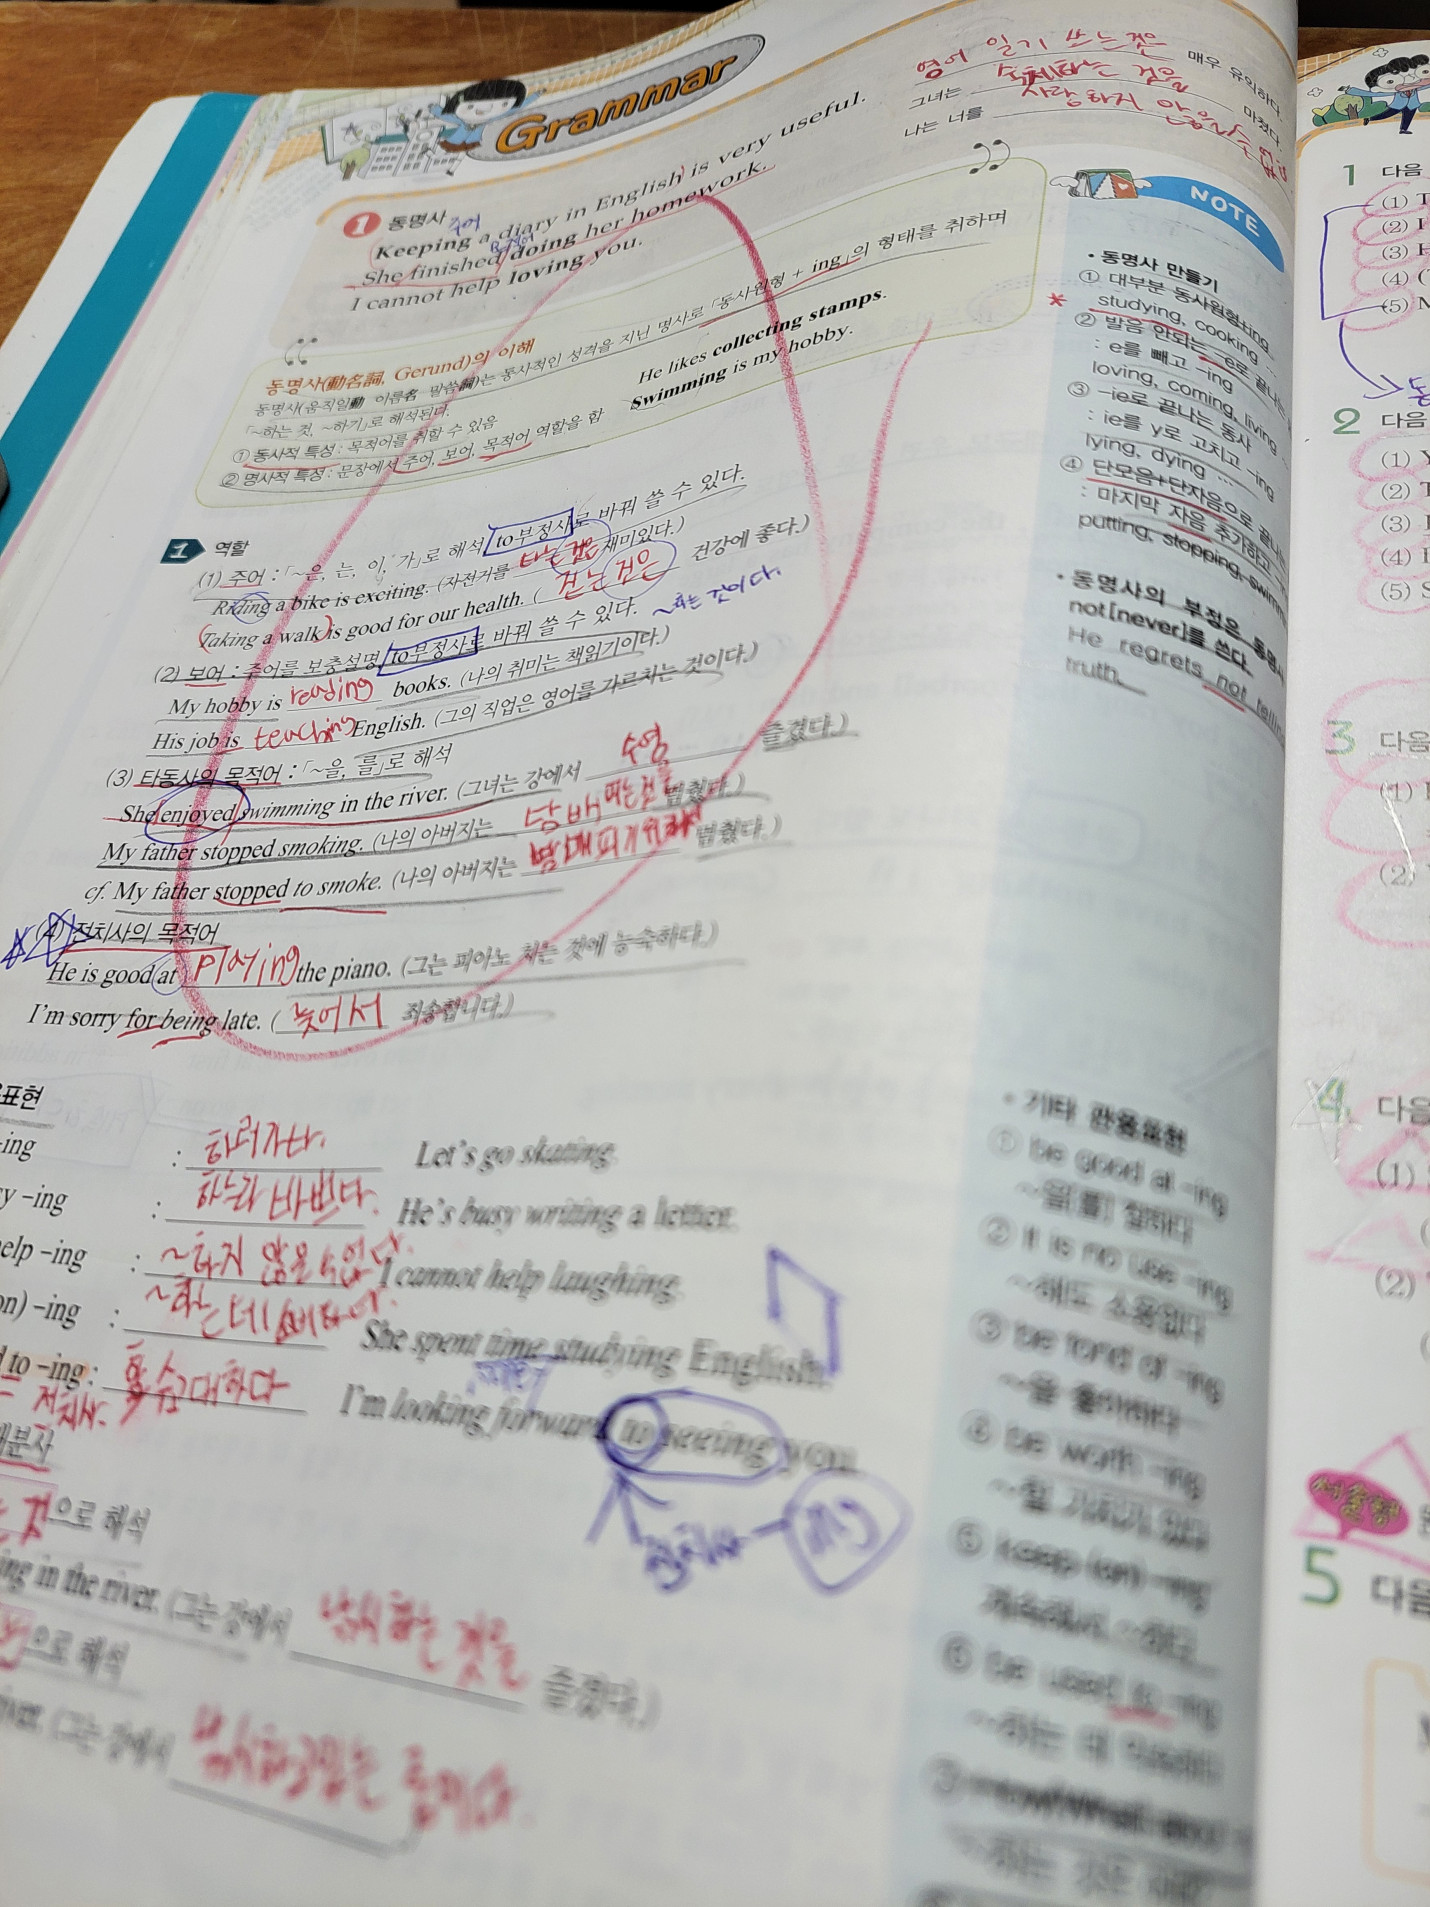 Grammar
영어 일기 쓰는것은 매우 유익하다.
그녀는 숙제하는 것을 마쳤다.
나는 너를 사랑하지 않을 수 없다
1 동명사 주어
Keeping a diary in English is very useful.
She finished doing her homework.
I cannot help loving you.
동명사(動名詞, Gerund)의 이해
동명사(움직일動 이름名 말씀詞)는 동사적인 성격을 지닌 명사로 「동사원형 + ing」의 형태를 취하며
「~하는 것, ~하기」로 해석된다.
① 동사적 특성 : 목적어를 취할 수 있음 He likes collecting stamps.
② 명사적 특성 : 문장에서 주어, 보어, 목적어 역할을 함 Swimming is my hobby.
1 역할
(1) 주어 : 「~은, 는, 이, 가」로 해석 to부정사로 바꿔 쓸 수 있다.
Riding a bike is exciting. (자전거를 타는 것은 재미있다.)
Taking a walk is good for our health. ( 걷는 것은 건강에 좋다.)
(2) 보어 : 주어를 보충설명 to부정사로 바꿔 쓸 수 있다. ~하는 것이다.
My hobby is reading books. (나의 취미는 책읽기이다.)
His job is teaching English. (그의 직업은 영어를 가르치는 것이다.)
(3) 타동사의 목적어 : 「~을, 를」로 해석
She enjoyed swimming in the river. (그녀는 강에서 수영을 즐겼다.)
My father stopped smoking. (나의 아버지는 담배 피는것 멈췄다.)
cf. My father stopped to smoke. (나의 아버지는 담배피기위해서 멈췄다.)
(4) 전치사의 목적어
He is good at playing the piano. (그는 피아노 치는 것에 능숙하다.)
I'm sorry for being late. ( 늦어서 죄송합니다.)
표현
-ing : 하러가다. Let's go skating.
y -ing : 하느라 바쁘다. He's busy writing a letter.
elp -ing : ~하지 않을 수 없다. I cannot help laughing.
on) -ing : ~하는데 She spent time studying English.
to -ing : 학수고대하다 I'm looking forward to seeing you.
전치사.
분사
것으로 해석
ing in the river. (그는 강에서 낚시하는 것을 즐겼다.)
으로 해석
river. (그는 강에서
전치사 - ing
NOTE
• 동명사 만들기
① 대부분 동사원형+ing
studying, cooking
② 발음 안되는 -e로 끝나는
: e를 빼고 -ing
loving, coming, living
③ -ie로 끝나는 동사
: ie를 y로 고치고 -ing
lying, dying ...
④ 단모음+단자음으로 끝나는
: 마지막 자음 추가하고
putting, stopping, swimm
• 동명사의 부정은 동명사
not[never]를 쓴다.
He regrets not tellin
truth.
• 기타 관용표현
① be good at -ing
~을[를] 잘하다
② It is no use -ing
~해도 소용없다
③ be fond of -ing
~을 좋아하다
④ be worth -ing
~할 가치가 있다
⑤ keep (on) -ing
계속해서 ~하다
⑥ be used to -ing
~하는 데 익숙하다
⑦ How[What] about
1 다음
(1) T
(2) I
(3) H
(4) (
(5) M
2 다음
(1) Y
(2) T
(3) I
(4) I
(5) S
3 다음
(1)
(2)
4 다음
(1)
(2)
서술형
5 다음